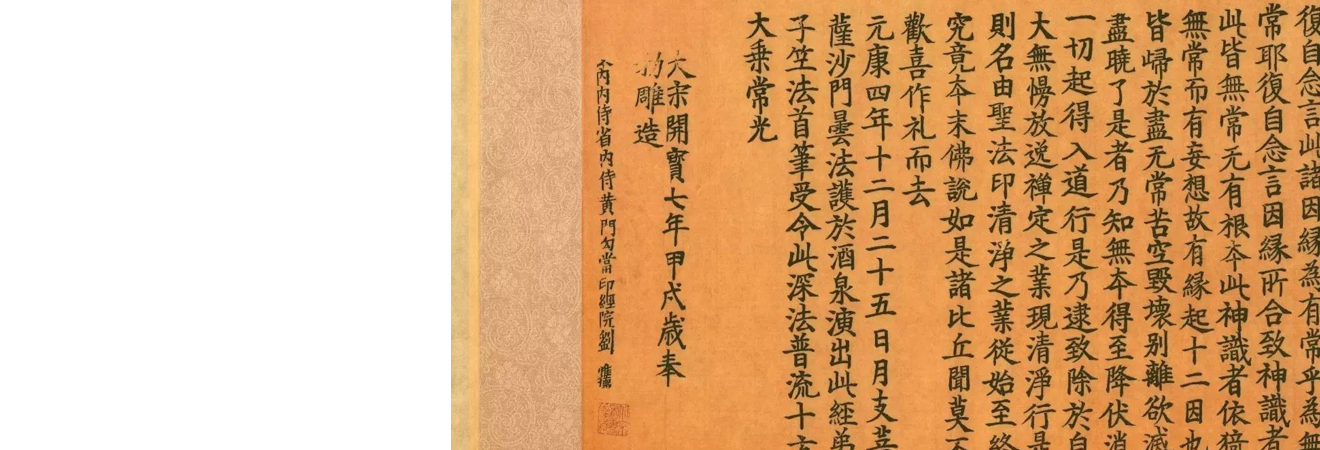 復自念言此諸因縁為有常乎為無
常耶復自念言因縁所合致神識者
此皆無常无有根夲此神識者依猗
無常而有妄想故有縁起十二因也
皆歸於盡无常苦空毀壞别離欲滅
盡曉了是者乃知無夲得至降伏消
一切起得入道行是乃逮致除於自
大無慢放逸禪定之業現清淨行是
則名由聖法印清淨之業從始至終
究竟夲末佛說如是諸比丘聞莫不
歡喜作礼而去
元康四年十二月二十五日月支菩
薩沙門曇法護於酒泉演出此經弟
子竺法首筆受令此深法普流十方
大乗常光
大宋開寶七年甲戌歲奉
勅雕造
入内内侍省内侍黄門勾當印經院劉